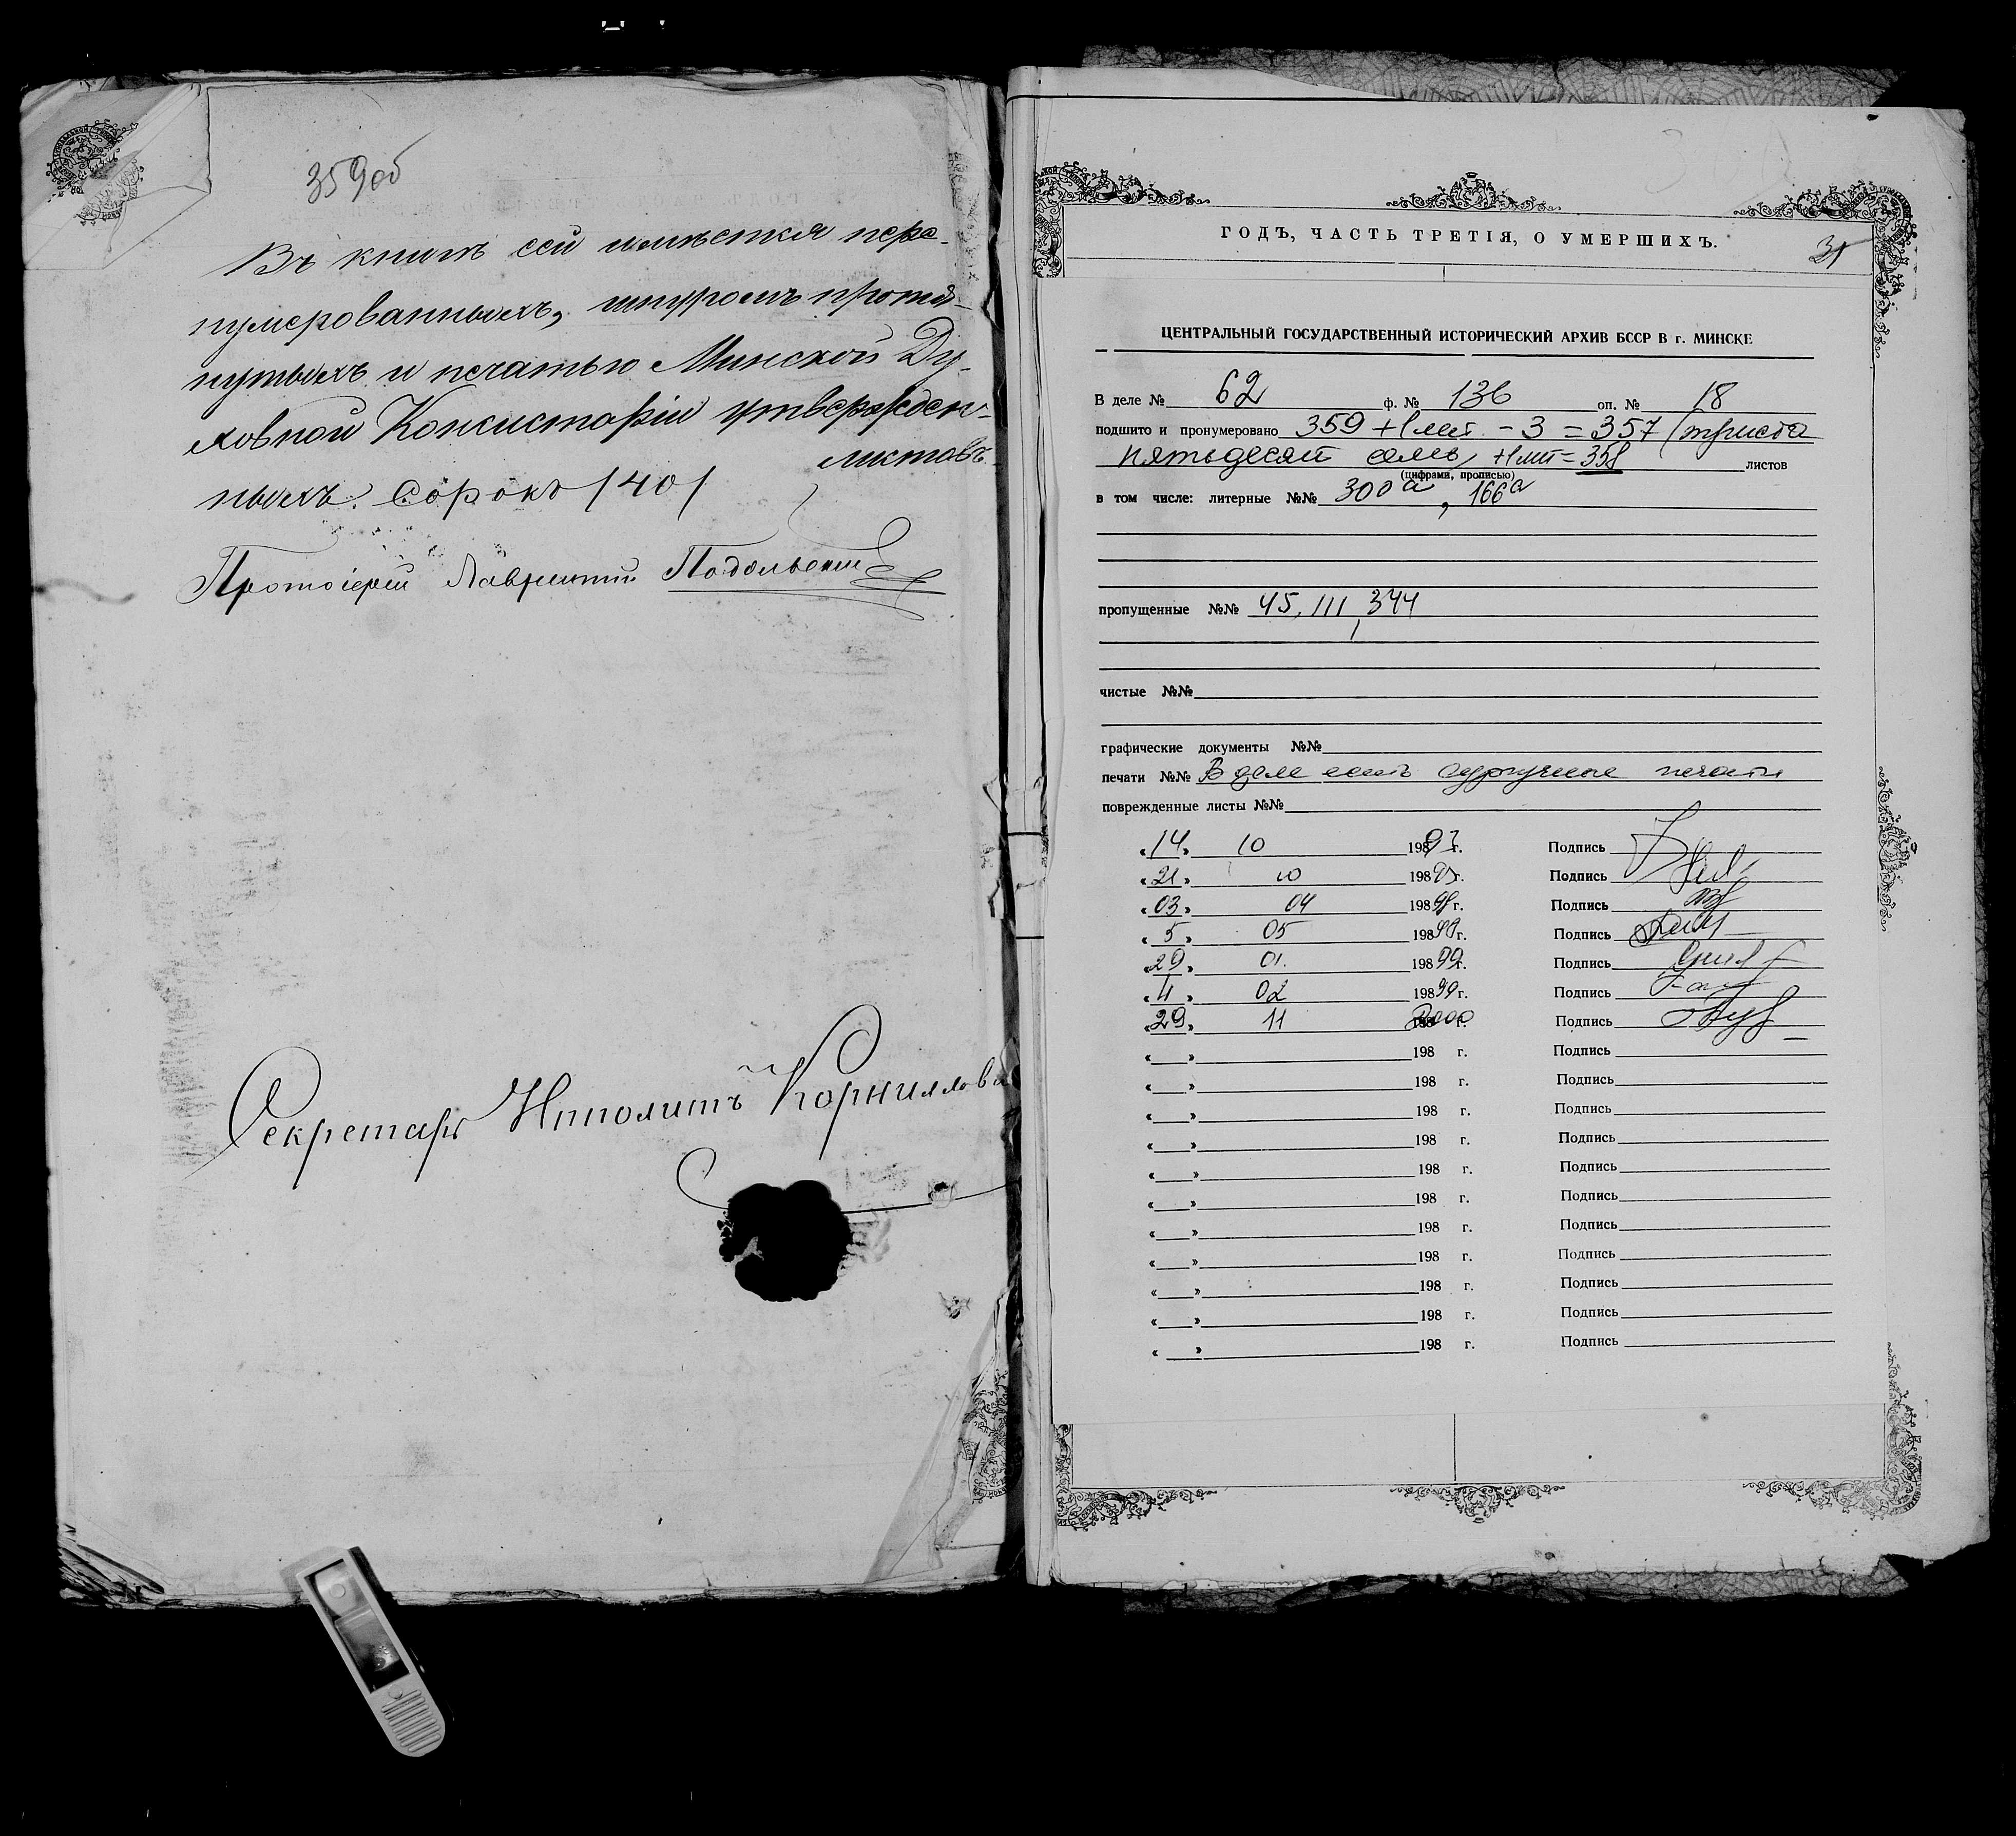 359об
Въ книгѣ сей имѣется пере-
нумерованныхъ, шнуромъ протя-
нутыхъ и печатью Минской Ду-
ховной Консисторіи утвержден-
листовъ
ныхъ. Сорокъ /40/
Протоіерей Лаврентій Подольскій
Секретарь Ипполитъ Корнилловъ
ГОДЪ, ЧАСТЬ ТРЕТІЯ, О УМЕРШИХЪ.
ЦЕНТРАЛЬНЫЙ ГОСУДАРСТВЕННЫЙ ИСТОРИЧЕСКИЙ АРХИВ БССР В г. МИНСКЕ
В деле № 62 ф. № 136 оп. № 18
подшито и пронумеровано 359 +1 лит. - 3 = 357 (триста
пятьдесят семь +1 лит = 358 листов
(цифрами, прописью)
в том числе: литерные №№ 300а, 166а
пропущенные №№ 45, 111, 344
чистые №№
графические документы №№
печати №№ В деле есть сургучные печати
поврежденные листы №№
«14» 10 198 97 г. Подпись
«21» 10 198 97 г. Подпись
«03» 04 198 98 г. Подпись
«5» 05 198 98 г. Подпись
«29» 01. 198 99 г. Подпись
«4» 02 198 99 г. Подпись
«29» 11 198 2000 г. Подпись
« » 198 г. Подпись
« » 198 г. Подпись
« » 198 г. Подпись
« » 198 г. Подпись
« » 198 г. Подпись
« » 198 г. Подпись
« » 198 г. Подпись
« » 198 г. Подпись
« » 198 г. Подпись
« » 198 г. Подпись
« » 198 г. Подпись